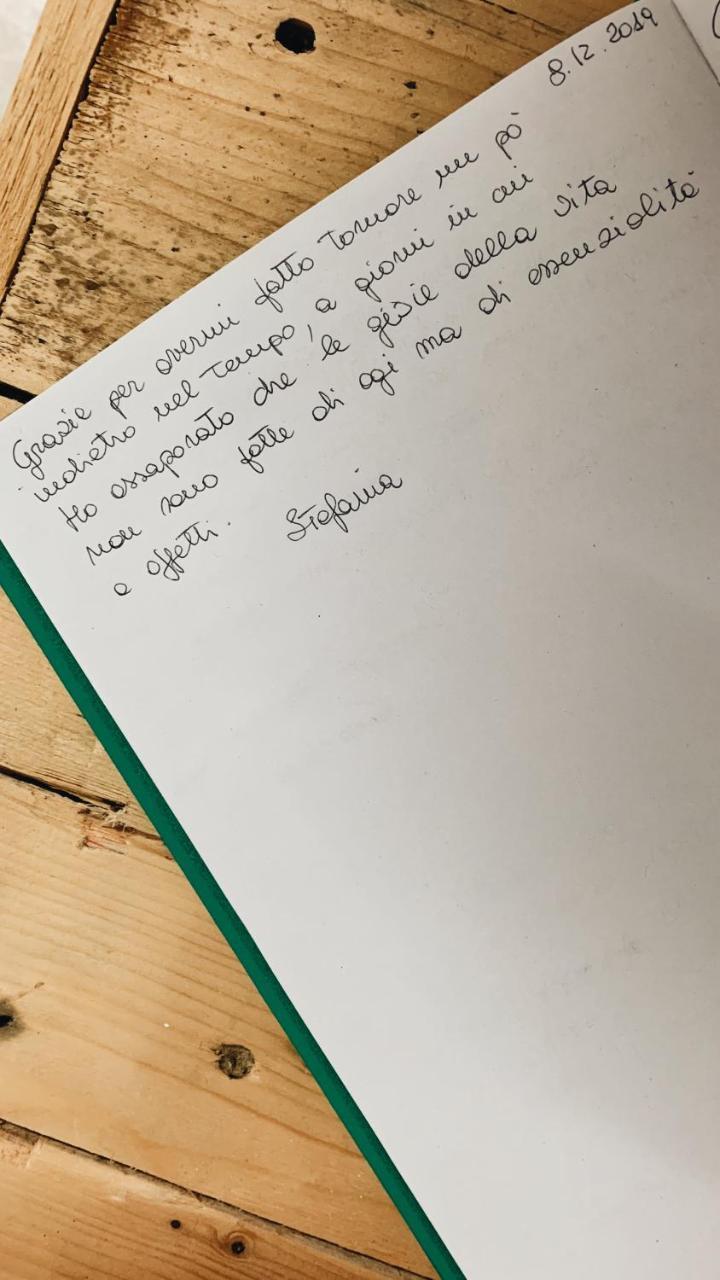 8.12.2019
Grazie per avermi fatto tornare un pò
indietro nel tempo, a giorni in cui
Ho assaporato che le gioie della vita
non sono fatte di agi ma di essenzialità
e affetti. Stefania